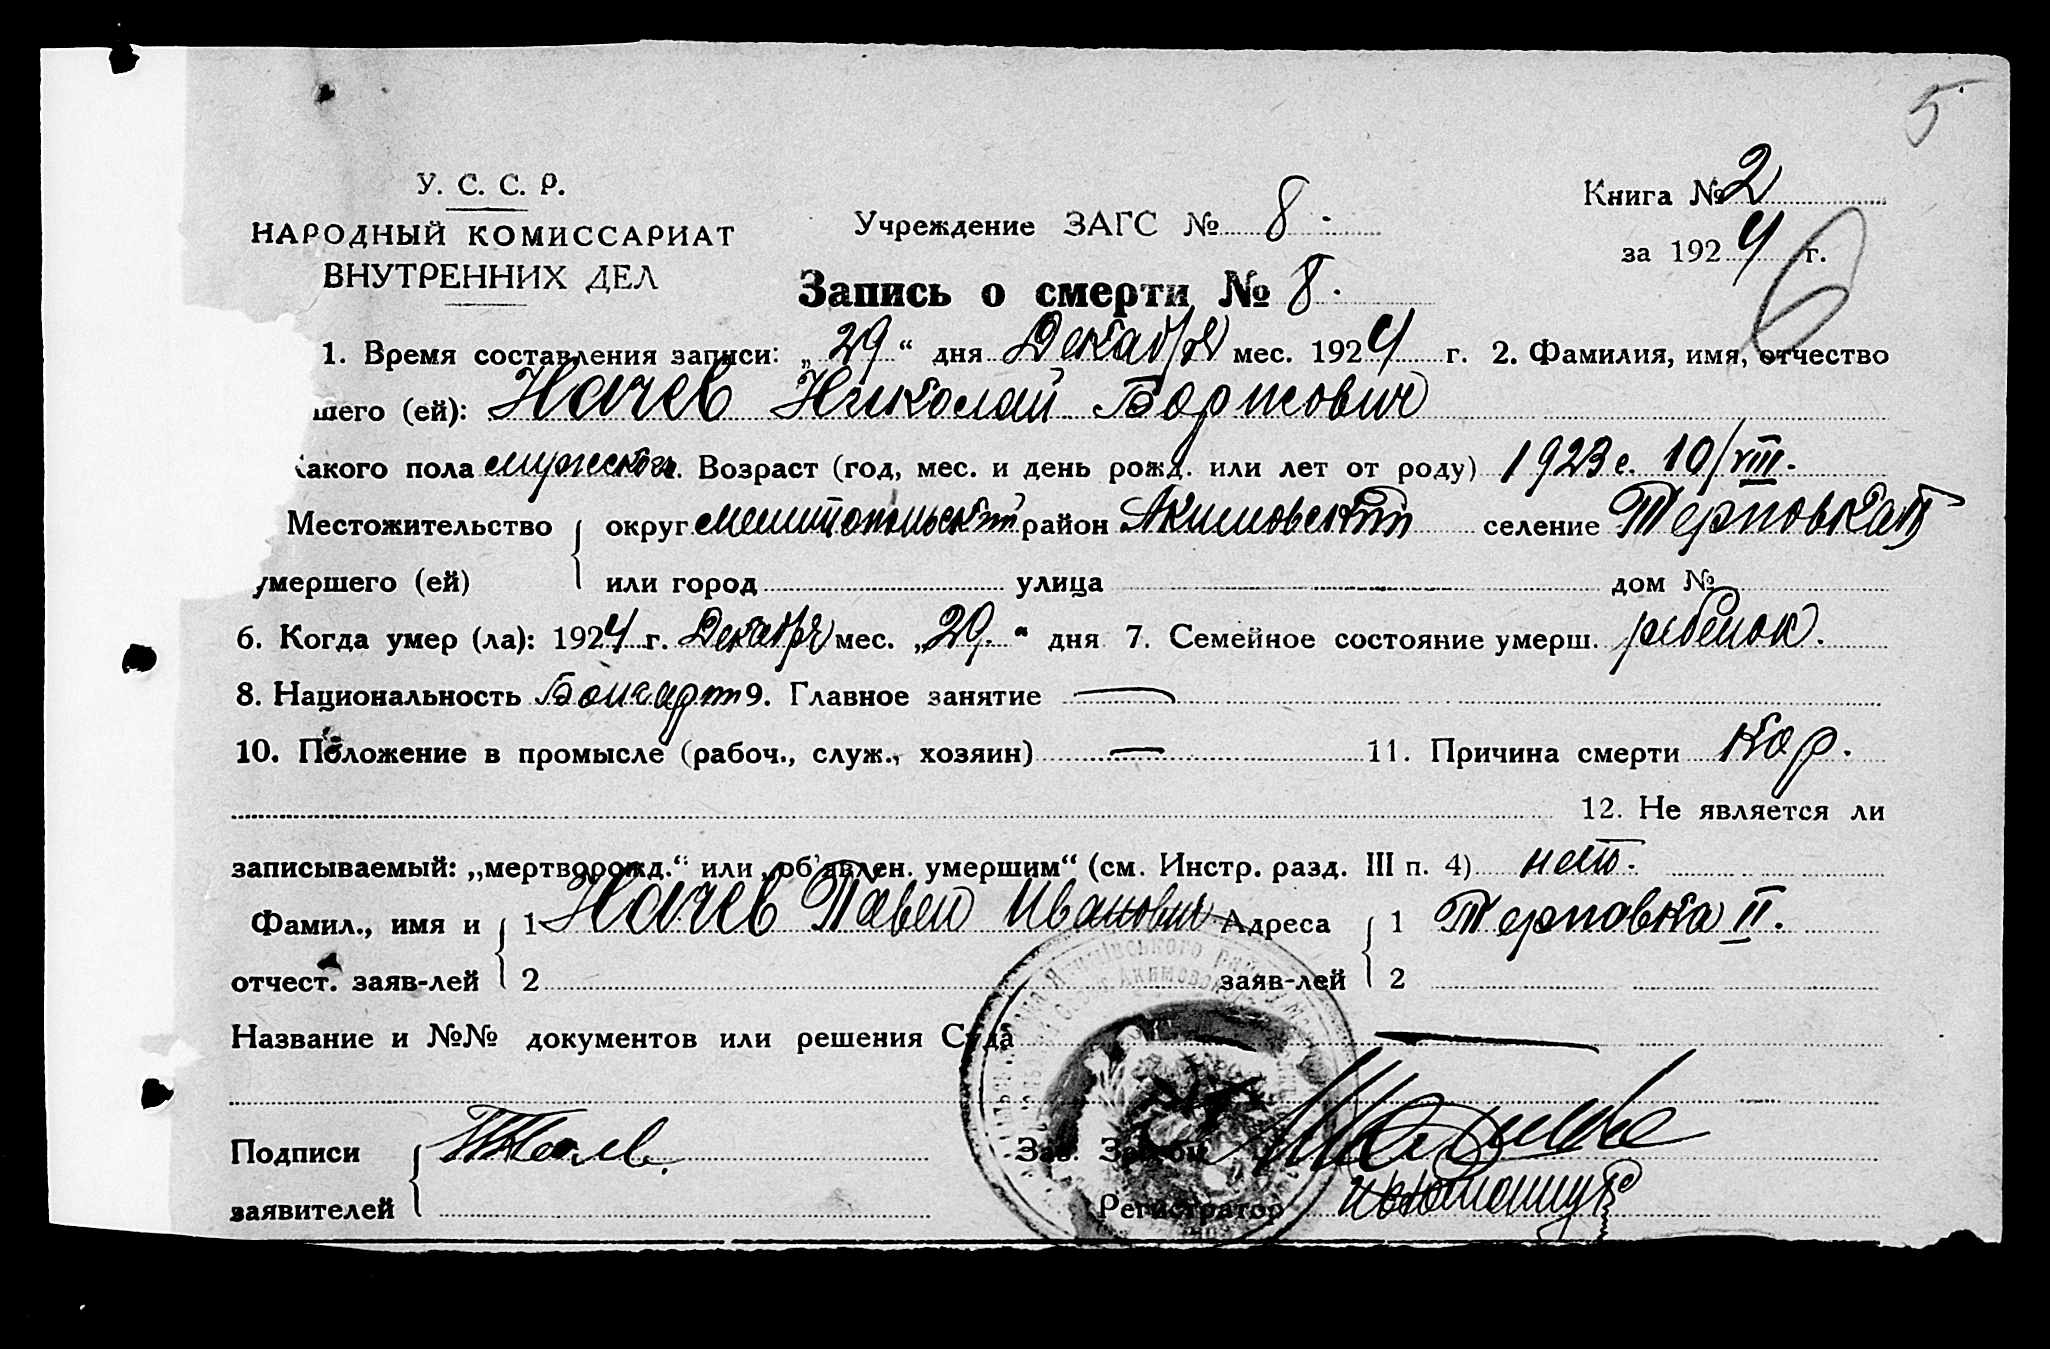 5
У. С. С. Р.
НАРОДНЫЙ КОМИССАРИАТ
ВНУТРЕННИХ ДЕЛ
Учреждение ЗАГС № 8.
Книга № 2
за 1924 г.
6
Запись о смерти № 8.
1. Время составления записи: „29“ дня Декабря мес. 1924 г. 2. Фамилия, имя, отчество
шего (ей): Начев Николай Борисович
какого пола мужеского. Возраст (год, мес. и день рожд. или лет от роду) 1923 г. 10/VIII.
Местожительство округ мелитопольский район Акимовский селение Терновка II
умершего (ей) или город улица дом №
6. Когда умер (ла): 1924 г. Декабря мес. „29.“ дня 7. Семейное состояние умерш. ребенок.
8. Национальность Болгарин 9. Главное занятие —
10. Положение в промысле (рабоч., служ., хозяин) — 11. Причина смерти Кор.
12. Не является ли
записываемый: „мертворожд.“ или „об'явлен. умершим“ (см. Инстр. разд. III п. 4) нет.
Фамил., имя и 1 Начев Павел Иванович Адреса 1 Терновка II.
отчест. заяв-лей 2 заяв-лей 2
Название и №№ документов или решения Суда —
Подписи Зав. Загсом
заявителей Регистратор